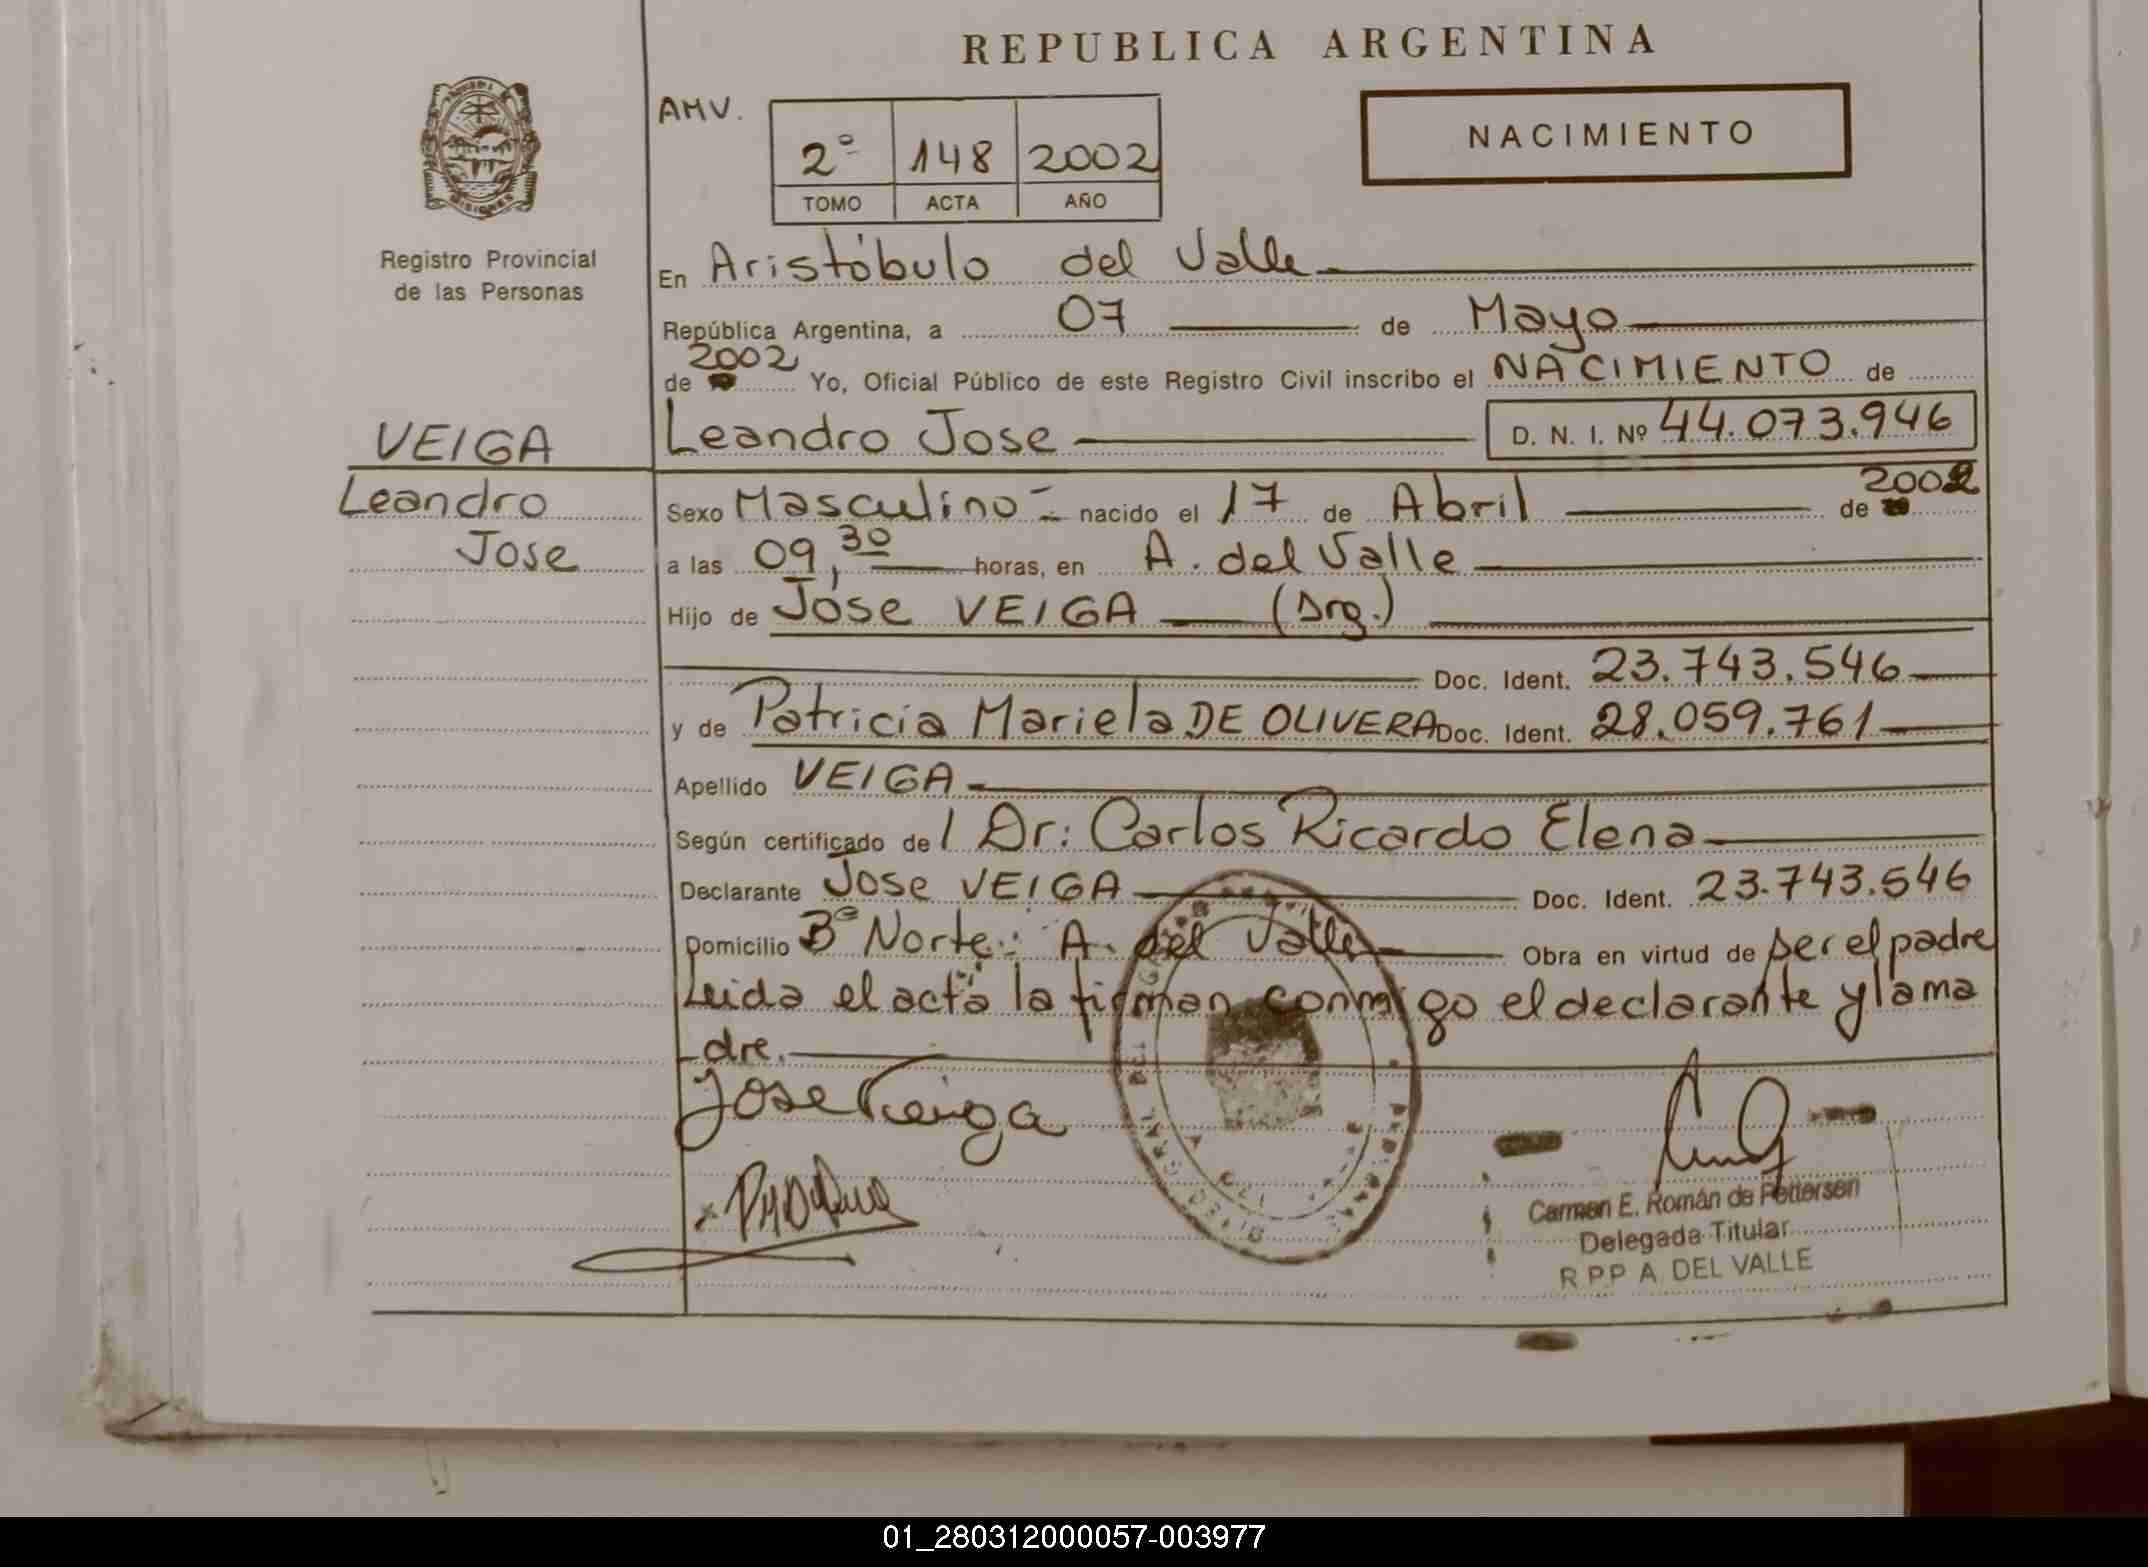 REPUBLICA ARGENTINA
AMV.
2º 148 2002
TOMO ACTA AÑO
NACIMIENTO
MISIONES
Registro Provincial
de las Personas
En Aristóbulo del Valle
República Argentina, a 07 de Mayo
de 2002 Yo, Oficial Público de este Registro Civil inscribo el NACIMIENTO de
Leandro Jose D. N. I. Nº 44.073.946
VEIGA
Leandro
Jose
Sexo Masculino nacido el 17 de Abril de 2002
a las 09,30 horas, en A. del Valle
Hijo de Jose VEIGA (Arg.)
Doc. Ident. 23.743.546
y de Patricia Mariela DE OLIVERA Doc. Ident. 28.059.761
Apellido VEIGA
Según certificado del Dr: Carlos Ricardo Elena
Declarante Jose VEIGA Doc. Ident. 23.743.546
Domicilio Bº Norte: A. del Valle Obra en virtud de ser el padre
Leida el acta la firman conmigo el declarante y la ma
dre.
Jose Veiga
Carmen E. Román de Pettersen
Delegada Titular
R P P A DEL VALLE
01_280312000057-003977